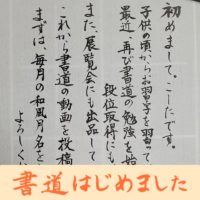 初めまして、こーたです。
子供の頃からお習字を習って
最近、再び書道の勉強を始
段位取得にも
また、展覧会にも出品して
これから書道の動画を投稿
まずは、毎月の和風月名を
よろしく
書道はじめました